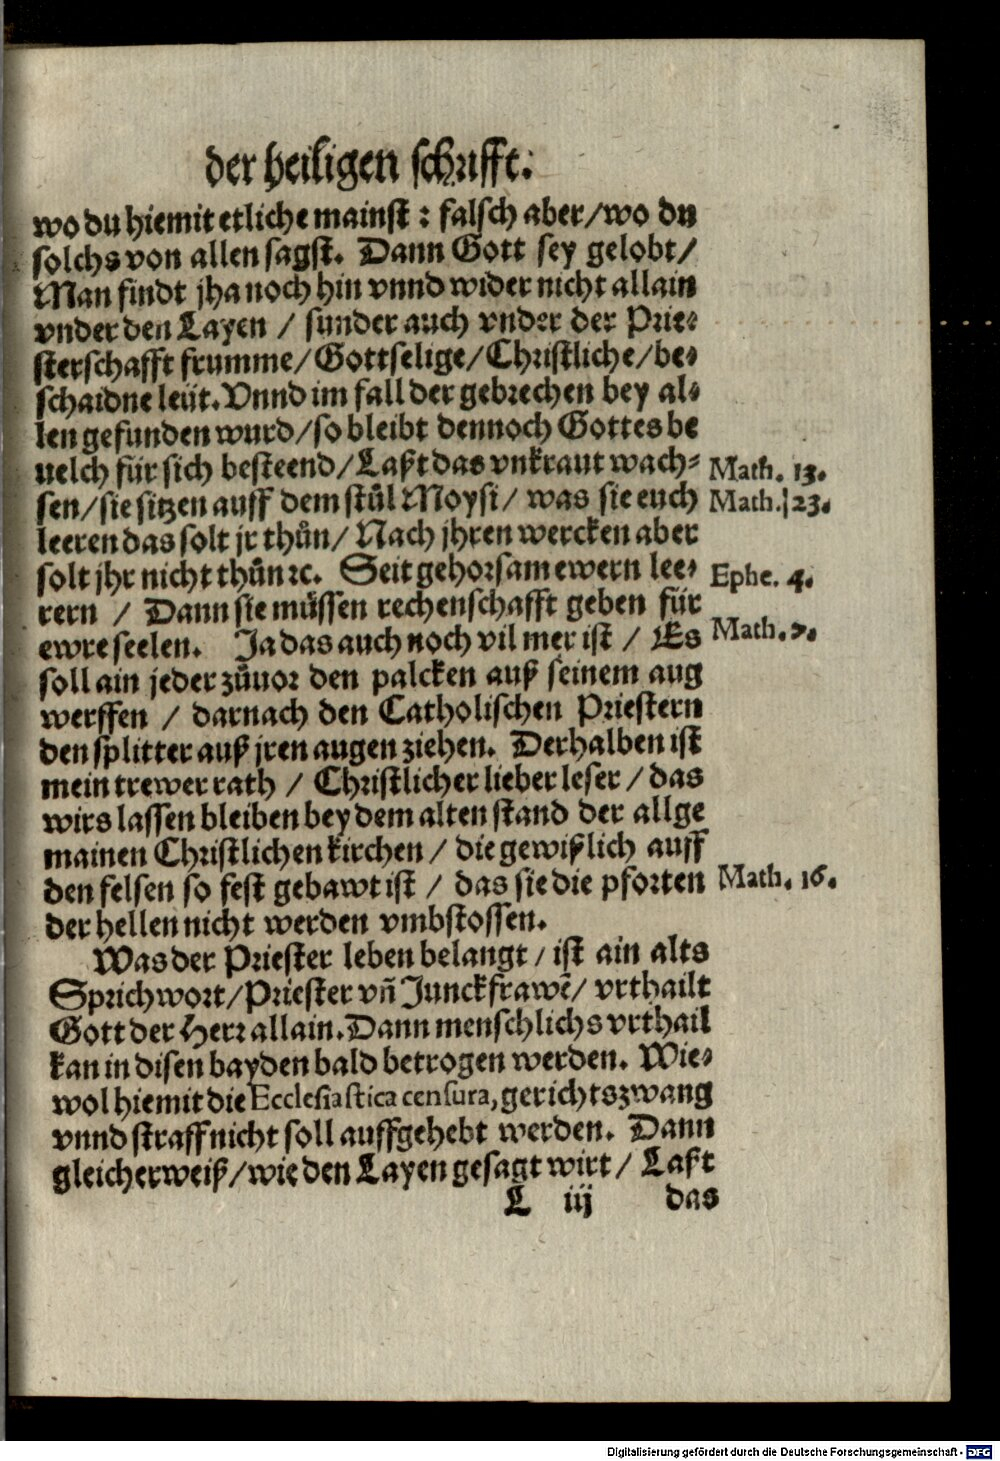 der heiligen schrifft.
wo du hiemit etliche mainst : falsch aber/wo du
solchs von allen sagst. Dann Gott sey gelobt/
Man findt jha noch hin vnnd wider nicht allain
vnder den Layen / sunder auch vnder der Prie⸗
sterschafft frumme/Gottselige/Christliche/be⸗
schaidne leüt. Vnnd im fall der gebrechen bey al⸗
len gefunden wurd/so bleibt dennoch Gottes be
uelch für sich besteend/Laßt das vnkraut wach⸗ Math. 13.
sen/sie sitzen auff dem stůl Moysi/ was sie euch Math. 23.
leeren das solt jr thůn/ Nach jhren wercken aber
solt jhr nicht thůn ꝛc. Seit gehorsam ewern lee⸗ Ephe. 4.
rern / Dann sie müssen rechenschafft geben für
ewre seelen. Ja das auch noch vil mer ist / Es Math. 7.
soll ain jeder zůuor den palcken auß seinem aug
werffen / darnach den Catholischen Priestern
den splitter auß jren augen ziehen. Derhalben ist
mein trewer rath / Christlicher lieber leser / das
wirs lassen bleiben bey dem alten stand der allge
mainen Christlichen kirchen / die gewißlich auff
den felsen so fest gebawt ist / das sie die pforten Math. 16.
der hellen nicht werden vmbstossen.
Was der Priester leben belangt / ist ain alts
Sprichwort/Priester vñ Junckfrawẽ/ vrthailt
Gott der Herr allain. Dann menschlichs vrthail
kan in disen bayden bald betrogen werden. Wie⸗
wol hiemit die Ecclesiastica censura, gerichtszwang
vnnd straff nicht soll auffgehebt werden. Dann
gleicherweiß/wie den Layen gesagt wirt / Laßt
L iij das
Digitalisierung gefördert durch die Deutsche Forschungsgemeinschaft - DFG